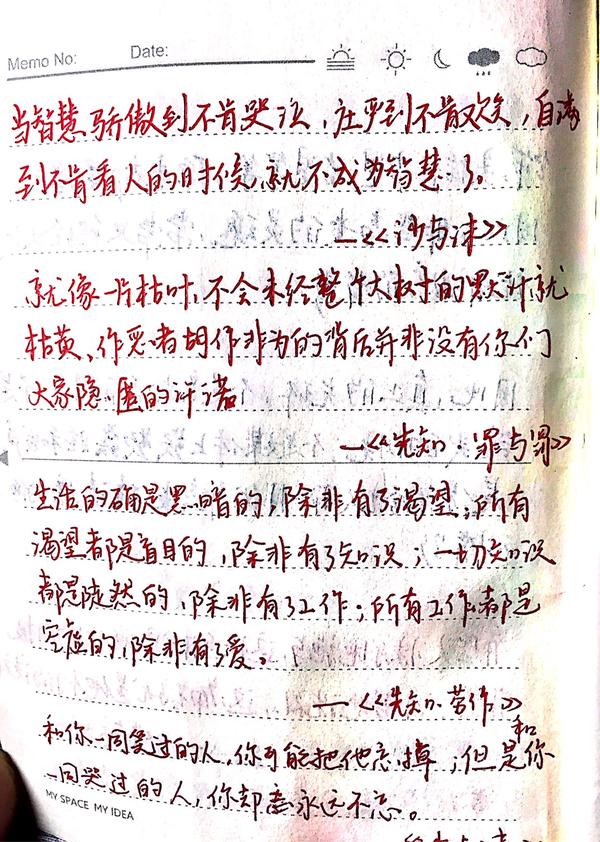 Memo No: Date:
当智慧骄傲到不肯哭泣,庄严到不肯欢笑,自满
到不肯看人的时候,就不成为智慧了。
—《沙与沫》
就像一片枯叶,不会未经整个大树的默许就
枯黄、作恶者胡作非为的背后并非没有你们
大家隐匿的许诺
—《先知·罪与罚》
生活的确是黑暗的,除非有了渴望;所有
渴望都是盲目的,除非有了知识;一切知识
都是陡然的,除非有了工作;所有工作都是
空虚的,除非有了爱。
—《先知·劳作》
和你一同笑过的人,你可能把他忘掉;但是和你
一同哭过的人,你却永远不忘。
MY SPACE MY IDEA